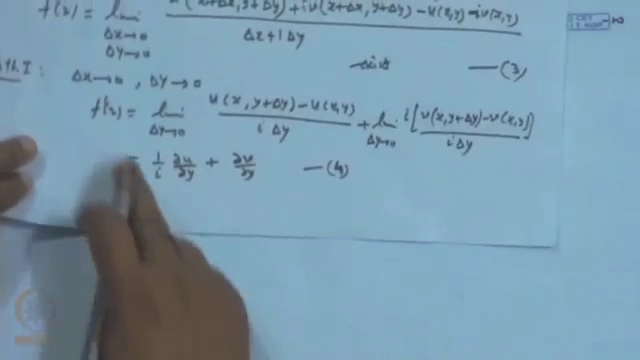 f'(z) = lim Δx→0 Δy→0 u(x+Δx, y+Δy) + iv(x+Δx, y+Δy) - u(x,y) - iv(x,y) / Δx + iΔy
exists —(3)
Path I: Δx→0, Δy→0
f'(z) = lim Δy→0 u(x, y+Δy) - u(x,y) / iΔy + lim Δy→0 i[v(x, y+Δy) - v(x,y)] / iΔy
= 1/i ∂u/∂y + ∂v/∂y —(4)